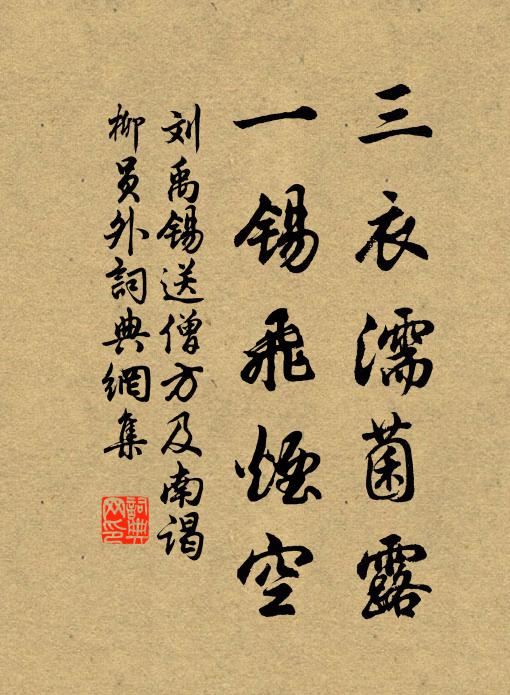 三衣濡菌露
一锡飛煙空
刘禹锡送僧方及南谒
柳員外詞典網集
詞典
网印